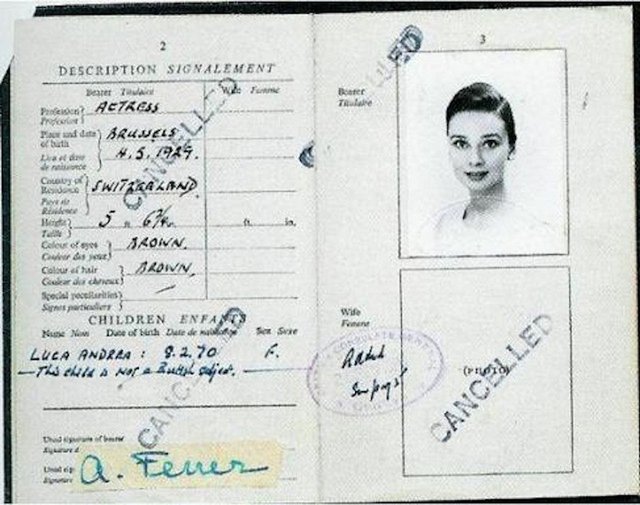 2
DESCRIPTION SIGNALEMENT
Bearer Titulaire
Wife Femme
Profession
Profession
ACTRESS
Place and date
of birth
Lieu et date
de naissance
BRUSSELS
4.5.1929.
Country of
Residence
Pays de
Résidence
SWITZERLAND
Height
Taille
5 6¾
ft. in.
Colour of eyes
Couleur des yeux
BROWN.
Colour of hair
Couleur des cheveux
BROWN.
Special peculiarities
Signes particuliers
CANCELLED
CHILDREN ENFANTS
Name Nom Date of birth Date de naissance Sex Sexe
LUCA ANDREA: 8.2.70 F.
This child is not a British subject.
CANCELLED
Usual signature of bearer
Signature
Usual
Signature
A. Ferrer
3
Bearer
Titulaire
Wife
Femme
(PHOTO)
CANCELLED